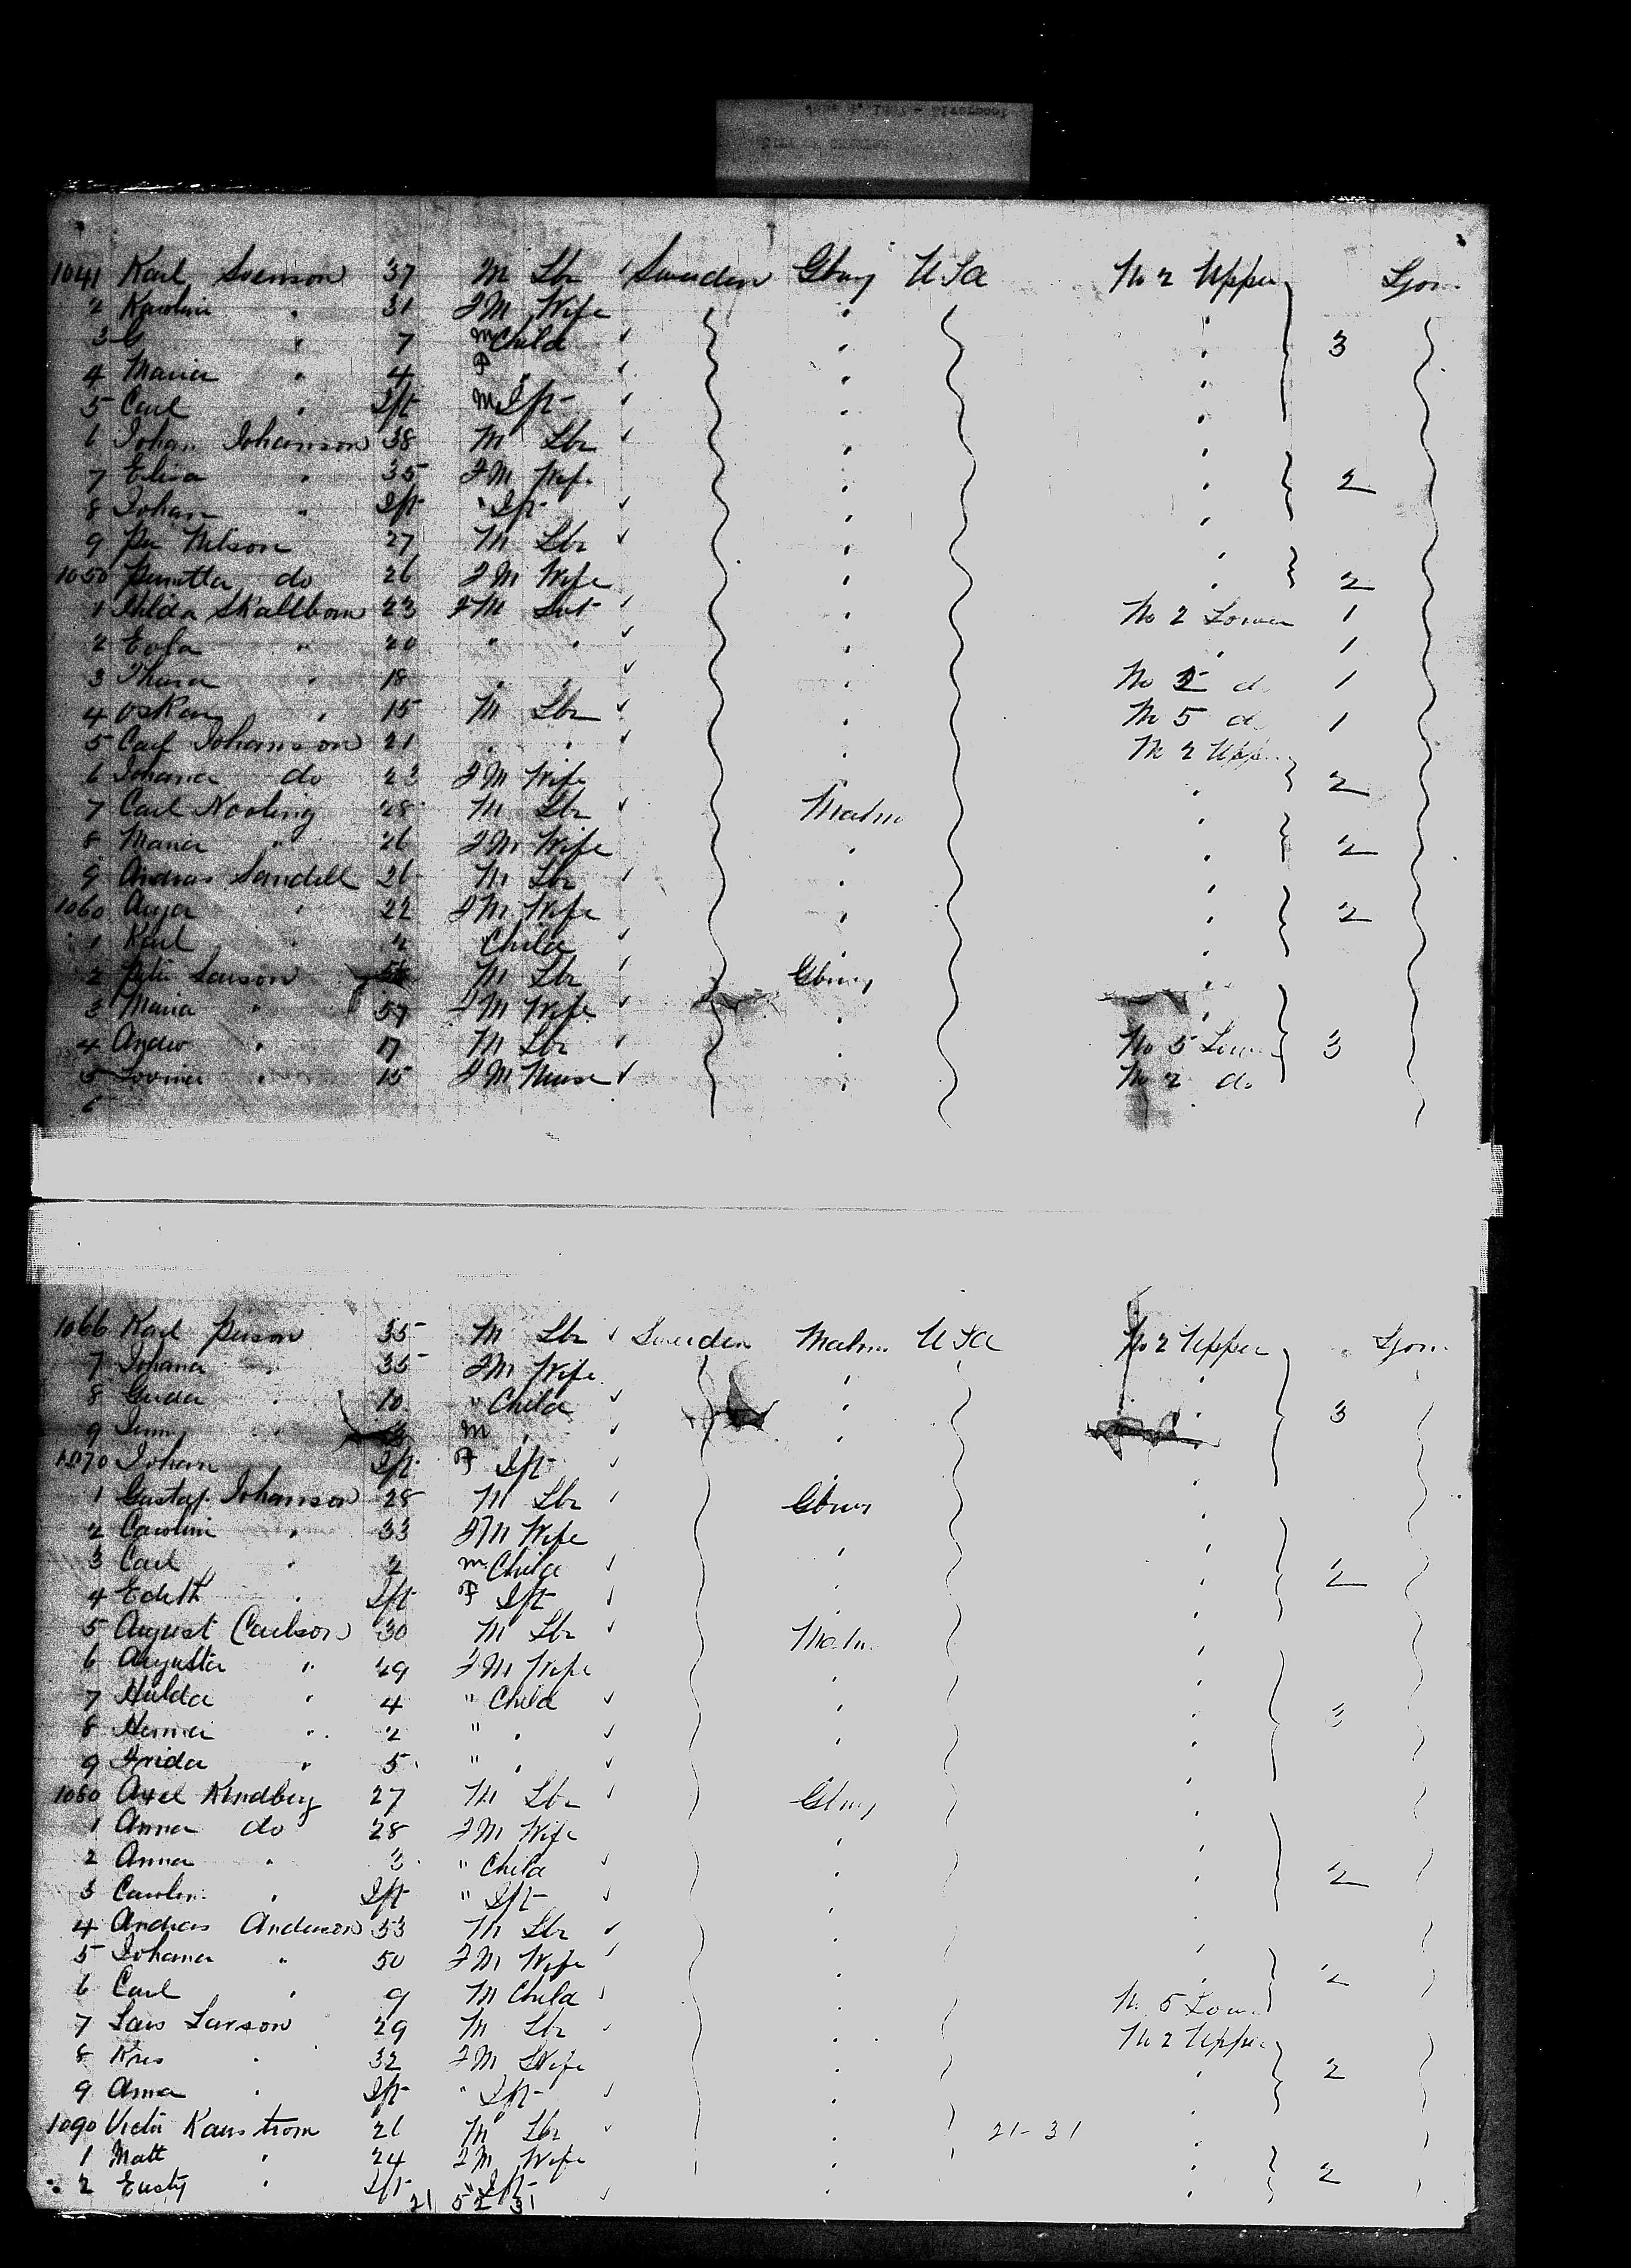 1041 Karl Svenson 37 M Lbr ✓ Sweden Gbury USA No 2 Upper Ljom
2 Karolin " 31 F M Wife "
3 G " 7 m Child ✓ " 3
4 Maria " 4 F " ✓ "
5 Carl " Ift m Ift ✓ "
6 Johan Johanson 38 M Lbr ✓ "
7 Elisa " 35 F M Wife " 2
8 Johan " Ift " Ift ✓ "
9 Per Nilson 27 M Lbr ✓ "
1050 Pernetta do 26 F M Wife " 2
1 Hilda Skallbom 23 F M Svt ✓ " No 2 Lower 1
2 " 20 " " ✓ " " 1
3 Thura " 18 " " ✓ " No 2 do 1
4 Oskar " 15 M Lbr ✓ " No 5 do 1
5 Carl Johanson 21 " " ✓ " No 2 Upper
6 Johana do 23 F M Wife " 2
7 Carl Nooling 28 M Lbr ✓ Malm "
8 Maria " 26 F M Wife " " 2
9 Andras Sandell 26 M Lbr ✓ " "
1060 " 22 F M Wife " " 2
1 Karl " 2 Child ✓ " "
2 Peter Larson M Lbr ✓ Gbury "
3 Maria " 57 F M Wife ✓ " "
4 Andrew " 17 M Lbr ✓ " No 5 Lower 3
5 " 15 F M Nurse ✓ " No 2 do
6
1066 Karl Person 35 M Lbr ✓ Sweden Malm USA No 2 Upper Ljom
7 Johana " 35 F M Wife " "
8 " 10 " Child ✓ " " 3
9 " m " ✓ "
1070 Johan " Ift F Ift ✓ " "
1 Gustaf Johanson 28 M Lbr ✓ Gbury "
2 Carolin " 33 F M Wife " "
3 Carl " 2 m Child ✓ " " 2
4 Edith " Ift F Ift ✓ " "
5 August Carlson 30 M Lbr ✓ Malm "
6 Augusta " 29 F M Wife " "
7 Hulda " 4 " Child ✓ " " 3
8 " 2 " " ✓ " "
9 Frida " 5 " " ✓ " "
1080 Axel Kindberg 27 M Lbr ✓ Gbury "
1 Anna do 28 F M Wife " "
2 Anna " 3 " Child ✓ " " 2
3 Carolin " Ift " Ift ✓ " "
4 Andras Anderson 53 M Lbr ✓ " "
5 Johana " 50 F M Wife ✓ " " 2
6 Carl " 9 M Child ✓ " No 5 Lower
7 Lars Larson 29 M Lbr ✓ " No 2 Upper
8 " 32 F M Wife " " 2
9 Anna " Ift " Ift ✓ " "
1090 Victor Kaustrom 26 M Lbr ✓ " 21-31 "
1 Matt " 24 F M Wife " " 2
2 " Ift " Ift ✓ " "
21 52 31